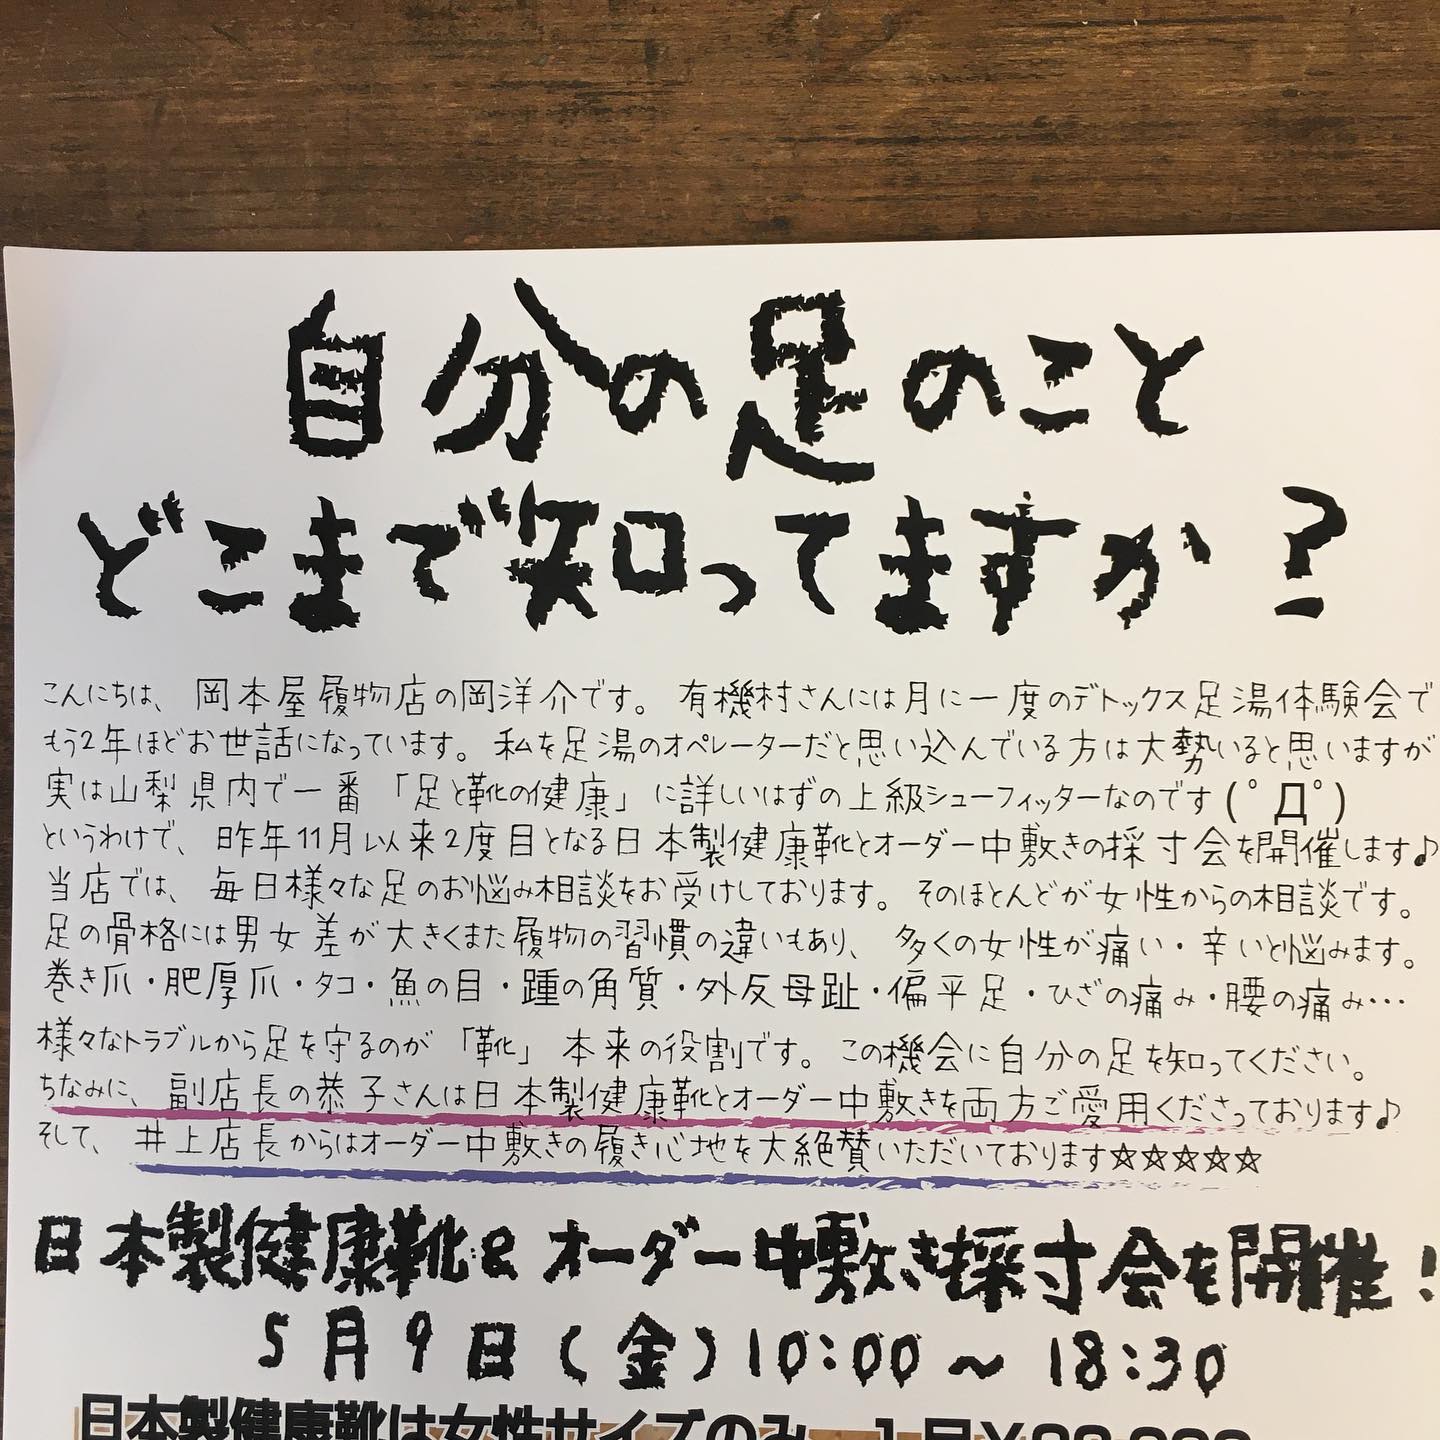 自分の足のこと
どこまで知ってますか?
こんにちは、岡本屋履物店の岡洋介です。有機村さんには月に一度のデトックス足湯体験会で
もう2年ほどお世話になっています。私を足湯のオペレーターだと思い込んでいる方は大勢いると思いますが
実は山梨県内で一番「足と靴の健康」に詳しいはずの上級シューフィッターなのです(゜Д゜)
というわけで、昨年11月以来2度目となる日本製健康靴とオーダー中敷きの採寸会を開催します♪
当店では、毎日様々な足のお悩み相談をお受けしております。そのほとんどが女性からの相談です。
足の骨格には男女差が大きくまた履物の習慣の違いもあり、多くの女性が痛い・辛いと悩みます。
巻き爪・肥厚爪・タコ・魚の目・踵の角質・外反母趾・偏平足・ひざの痛み・腰の痛み…
様々なトラブルから足を守るのが「靴」本来の役割です。この機会に自分の足を知ってください。
ちなみに、副店長の恭子さんは日本製健康靴とオーダー中敷きを両方ご愛用くださっております♪
そして、井上店長からはオーダー中敷きの履き心地を大絶賛いただいております☆☆☆☆☆
日本製健康靴&オーダー中敷き採寸会を開催!
5月9日(金)10:00~18:30
日本製健康靴は女性サイズのみ